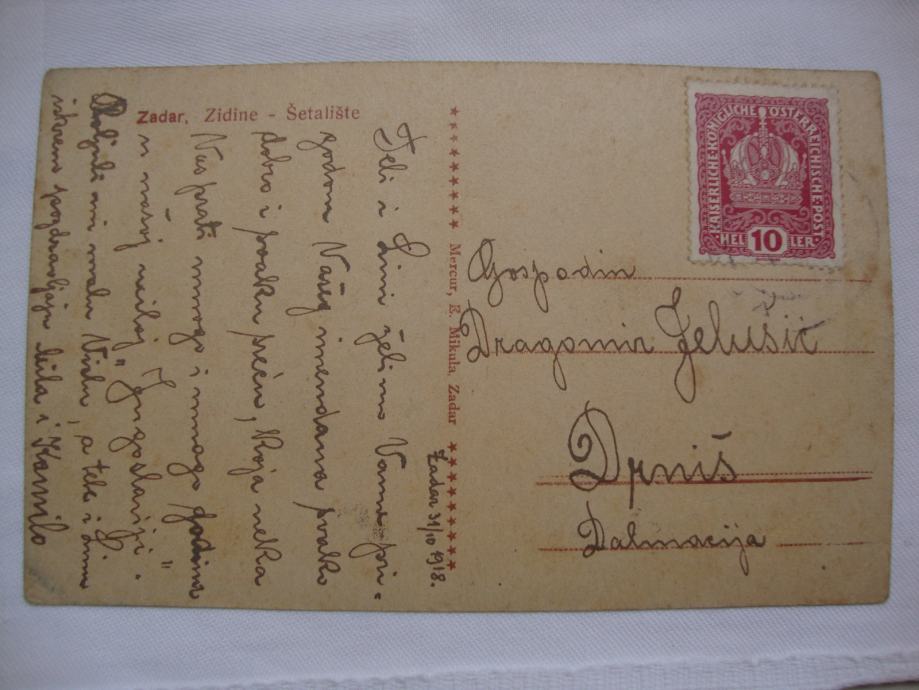 Zadar, Zidine - Šetalište
KAISERLICHE·KÖNIGLICHE ÖSTERREICHISCHE·POST
HEL 10 LER
Mercur, E. Mikula, Zadar
Zadar 31/10 1918.
i Lini želimo Vam pri-
godom Vašeg imendana svako
dobro i svaku sreću, koja neka
Vas prati mnogo i mnogo godina
u našoj miloj „Jugoslaviji".
malu a tebe i
iskreno pozdravljaju i Kamilo
Gospodin
Dragomir Jelušić
Drniš
Dalmacija